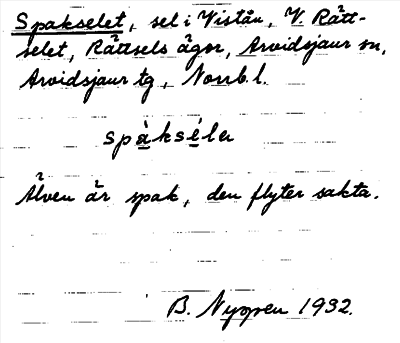 Spakselet, sel i Vistån, V. Rätt-
selet, Rättsels ägor, Arvidsjaur sn,
Arvidsjaur tg, Norrb. l.
spàkséleɩ
Älven är spak, den flyter sakta.
B. Nygren 1932.